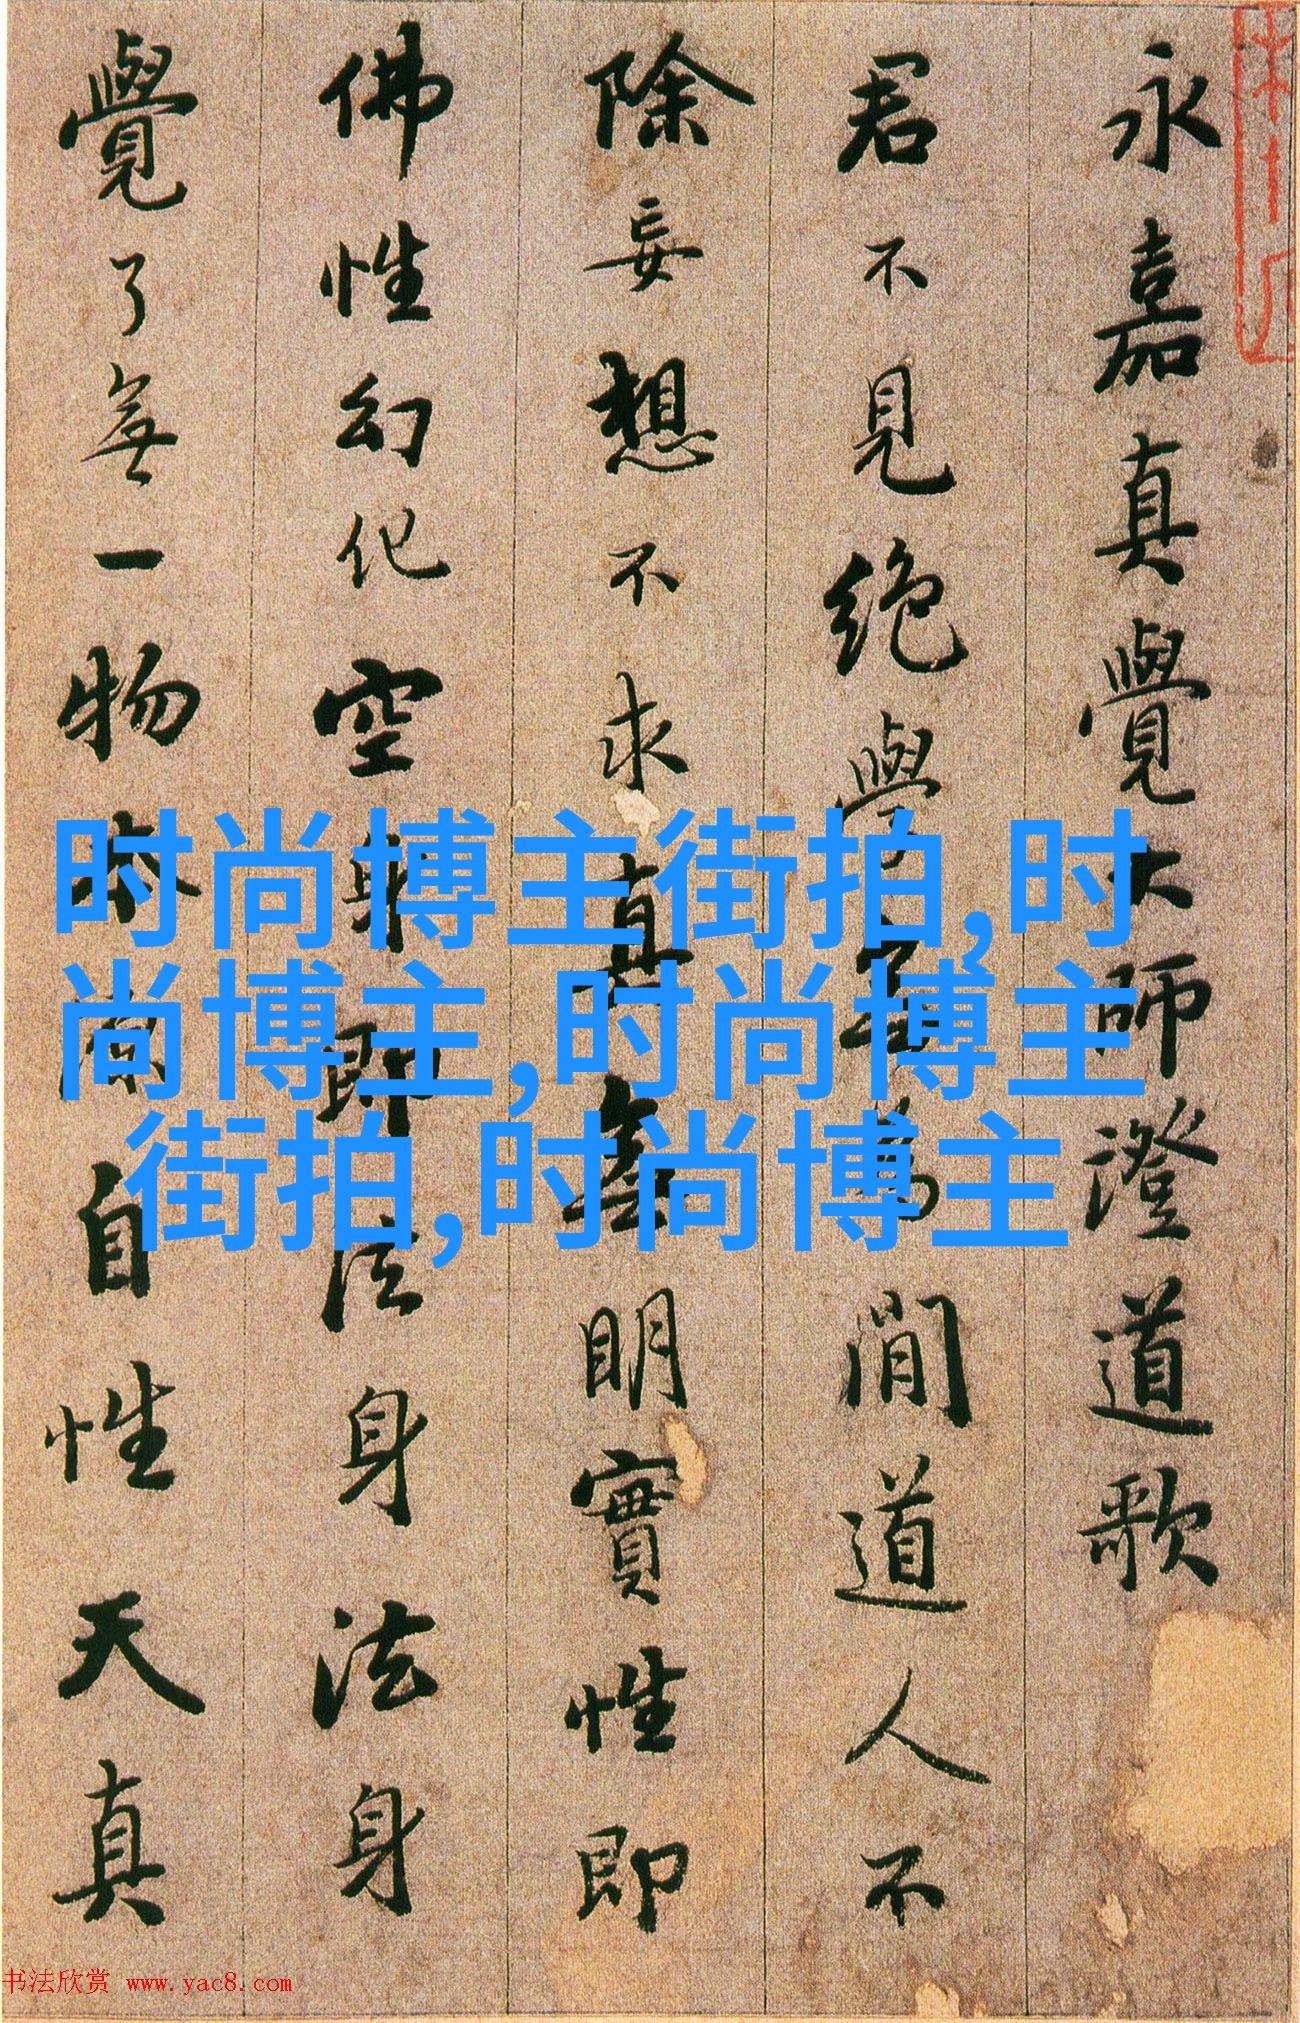 永嘉真覺大師澄道歌
君不見絶學無為閒道人不
除妄想不求真無明實性即
佛性幻化空身即法身法身
覺了無一物本源自性天真
时尚博主街拍,时
尚博主,时尚博主
街拍,时尚博主
书法欣赏 www.yac8.com